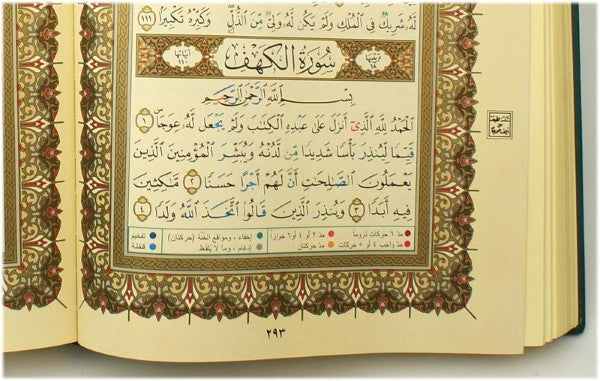 لَّهُۥ شَرِيكٌ فِى ٱلْمُلْكِ وَلَمْ يَكُن لَّهُۥ وَلِىٌّ مِّنَ ٱلذُّلِّ ۖ وَكَبِّرْهُ تَكْبِيرًۢا ١١١
ترتيبها ١٨ سُورَةُ الكَهْفِ آياتها ١١٠
بِسْمِ ٱللَّهِ ٱلرَّحْمَٰنِ ٱلرَّحِيمِ
ٱلْحَمْدُ لِلَّهِ ٱلَّذِىٓ أَنزَلَ عَلَىٰ عَبْدِهِ ٱلْكِتَٰبَ وَلَمْ يَجْعَل لَّهُۥ عِوَجَاۜ ١
قَيِّمًا لِّيُنذِرَ بَأْسًا شَدِيدًا مِّن لَّدُنْهُ وَيُبَشِّرَ ٱلْمُؤْمِنِينَ ٱلَّذِينَ
يَعْمَلُونَ ٱلصَّٰلِحَٰتِ أَنَّ لَهُمْ أَجْرًا حَسَنًا ٢ مَّٰكِثِينَ
فِيهِ أَبَدًا ٣ وَيُنذِرَ ٱلَّذِينَ قَالُوا۟ ٱتَّخَذَ ٱللَّهُ وَلَدًا ٤
مدّ ٦ حركات لزوماً مدّ ٢ أو ٤ أو ٦ جوازاً إخفاء، ومواقع الغُنَّة (حركتان) تفخيم
مدّ واجب ٤ أو ٥ حركات مدّ حركتان إدغام، وما لا يُلفظ قلقلة
٢٩٣